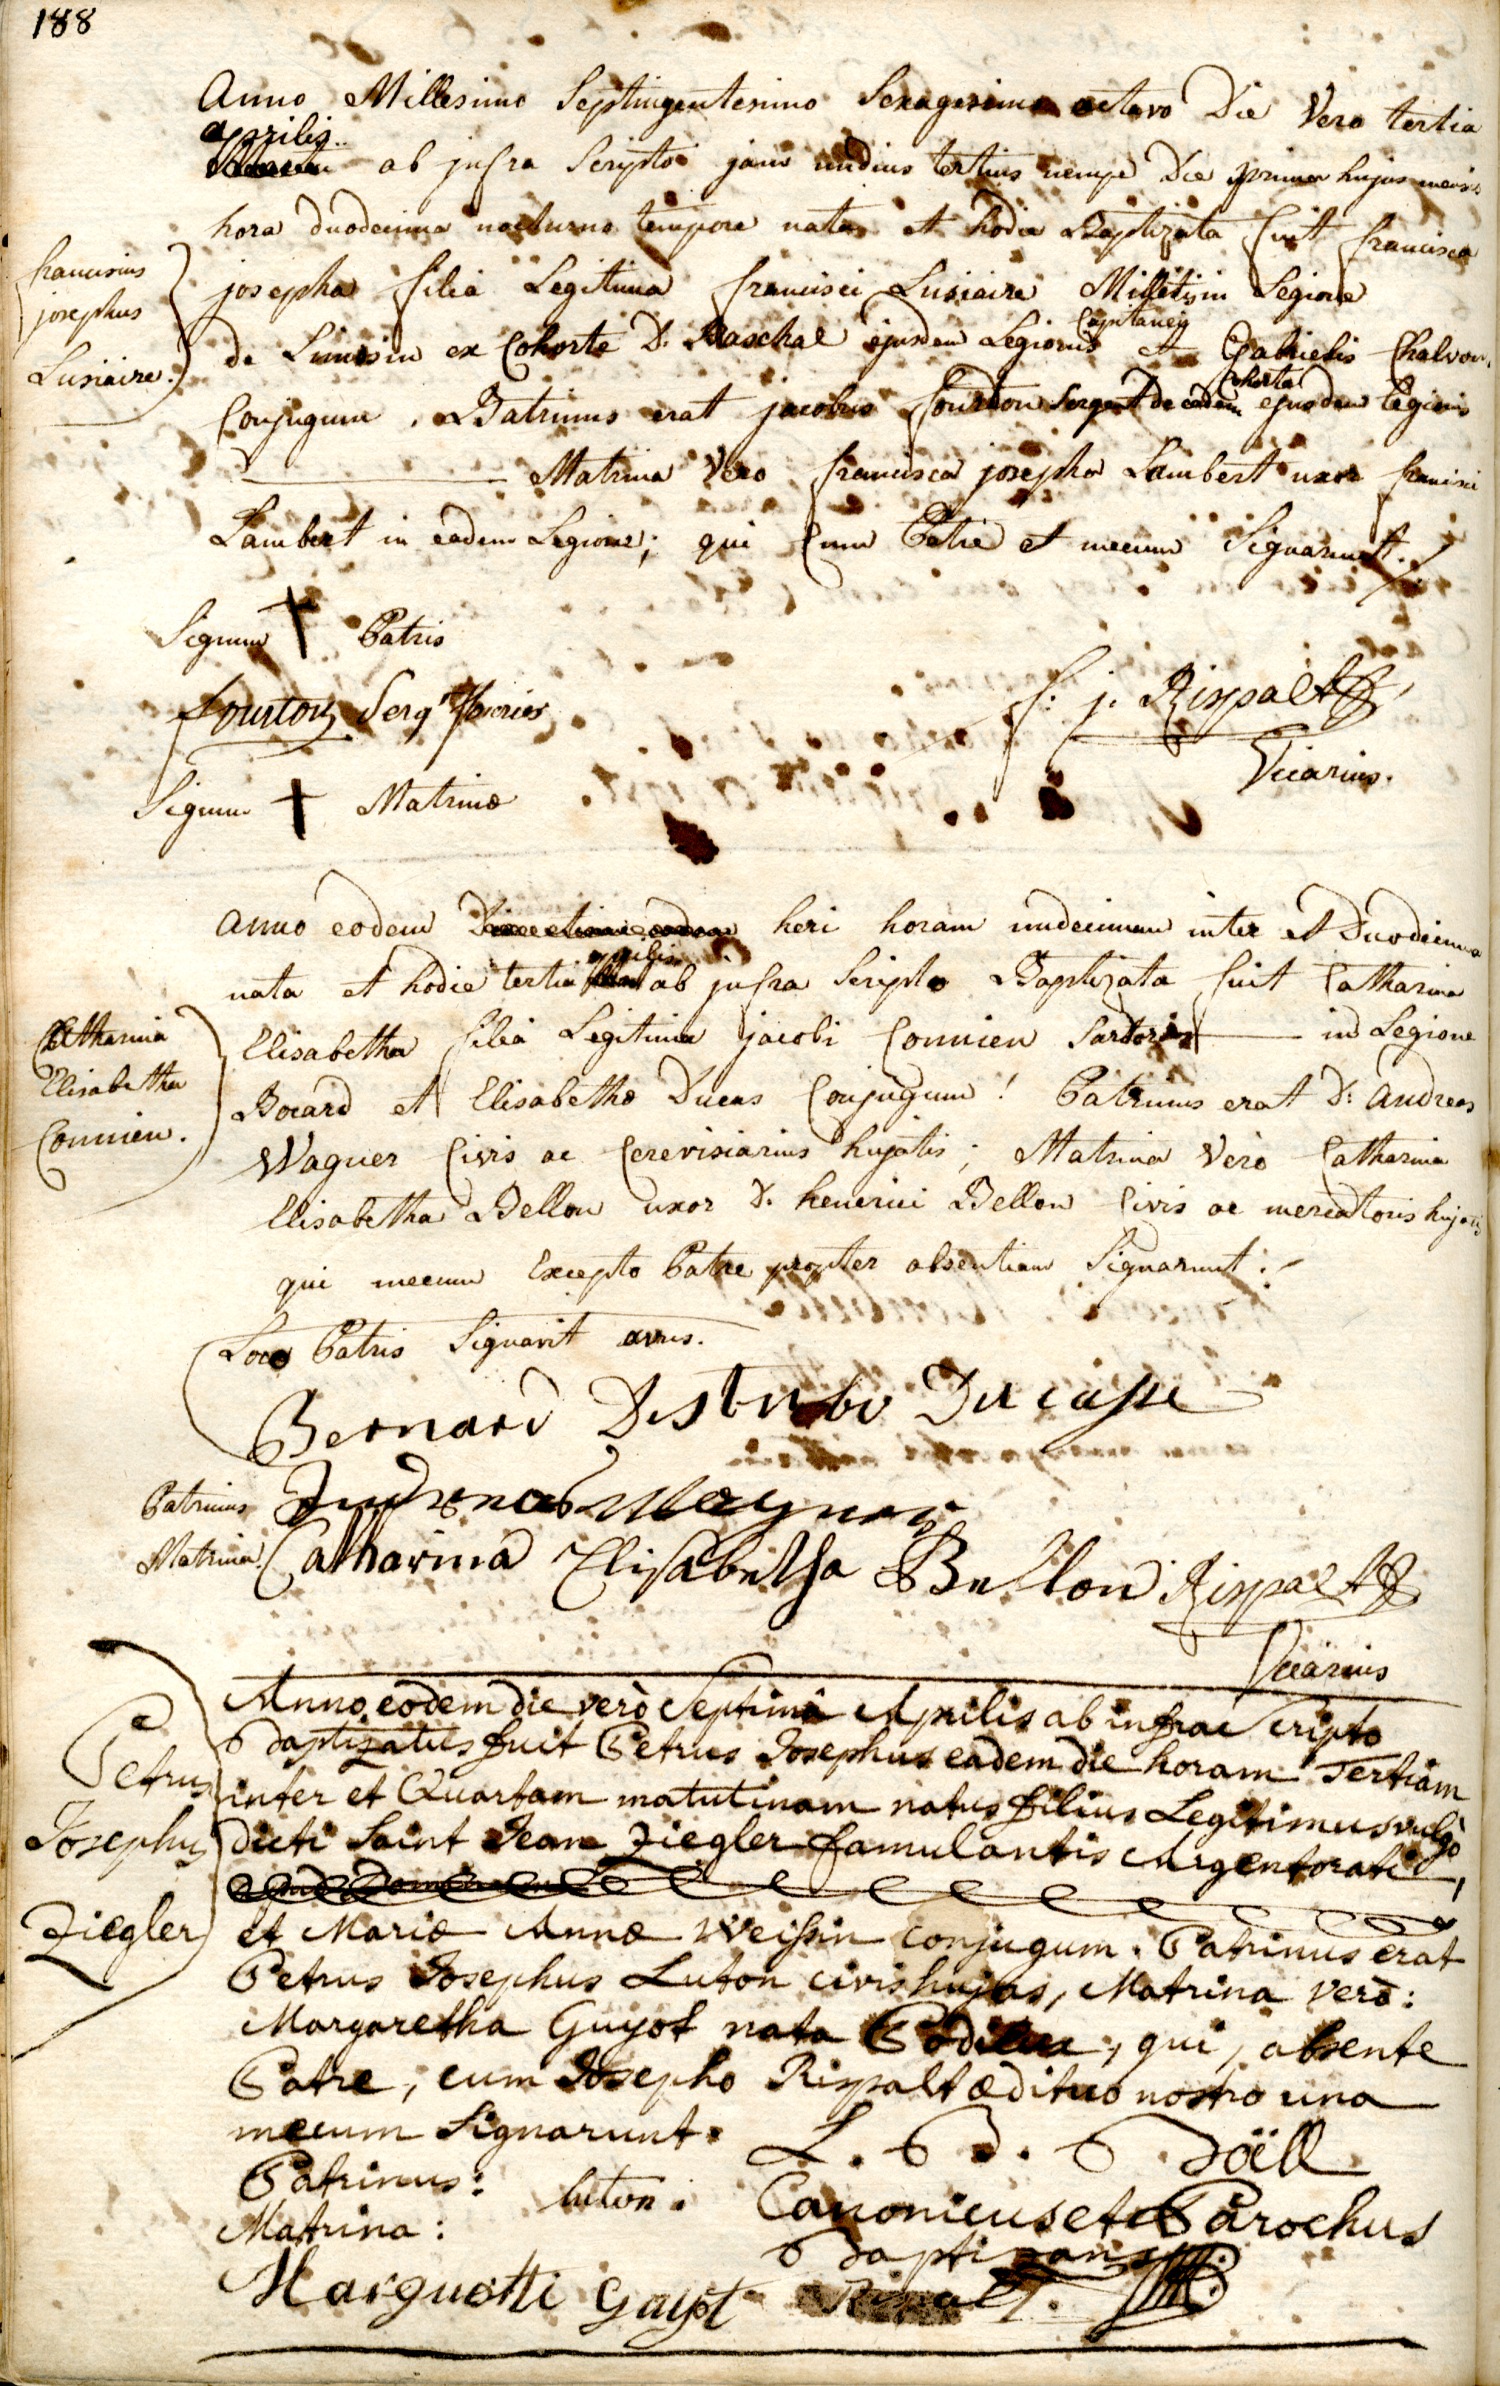 188
Anno Millesimo Septingentesimo Sexagesimo octavo Die Vero tertia
aprilis
ab jnfra Scripto jam nudius tertius nempe Die prima hujus mensis
hora duodecima nocturno tempore nata et hodie Baptizata fuit francisca
josepha filia Legitima francisci Lusiaire Militis in Legione
franciscus
josephus
Lusiaire.
Capitaney
de Limosin ex Cohorte D. Paschal ejusdem Legionis et Gabrielis Chalvon.
Cohorta
Conjugum. Patrinus erat jacobus fourton Sergent de eadem ejusdem Legionis
Matrina Vero francisca josepha Lambert uxor francisci
Lambert in eadem Legione; qui Cum Patre et mecum Signarunt./.
Signum + Patris
fourton Serg.t fourier
f: j. Rispalt
Vicarius.
Signum + Matrinæ
anno eodem heri horam undecimam inter et Duodecimam
aprilis
nata et hodie tertia ab jnfra Scripto Baptizata fuit Catharina
Elisabetha filia Legitima jacobi Connien Sartoris in Legione
Catharina
Elisabetha
Connien.
Bocard et Elisabethæ Ducas Conjugum! Patrinus erat D: andreas
Wagner Civis ac Cerevisiarius hujatis; Matrina Verò Catharina
Elisabetha Bellon uxor D. henrici Bellon Civis ac mercatoris hujatis
qui mecum Excepto Patre propter absentiam Signarunt:
Loco Patris Signavit avus.
Bernard Ducasse
Patrinus Andreas Wagner
Matrina. Catharina Elisabetha Bellon Rispalt
Vicarius
Anno eodem die verò Septimâ Aprilis ab infra Scripto
Baptizatus fuit Petrus Josephus eadem die horam Tertiam
inter et Quartam matutinam natus filius Legitimus vulgò
dicti Saint Jean Ziegler famulantis Argentorati,
Petrus
Josephus
Ziegler
et Mariæ Annæ Weissin conjugum. Patrinus erat
Petrus Josephus Luton civis hujas, Matrina verò:
Margaretha Guyot nata, qui, absente
Patre, cum Josepho Rispalt ædituo nostro una
mecum Signarunt.
L. B. J. B. Döll
Patrinus: luton.
Canonicus et Parochus
Matrina:
Baptizans
Marguotti Gayot Rispalt.